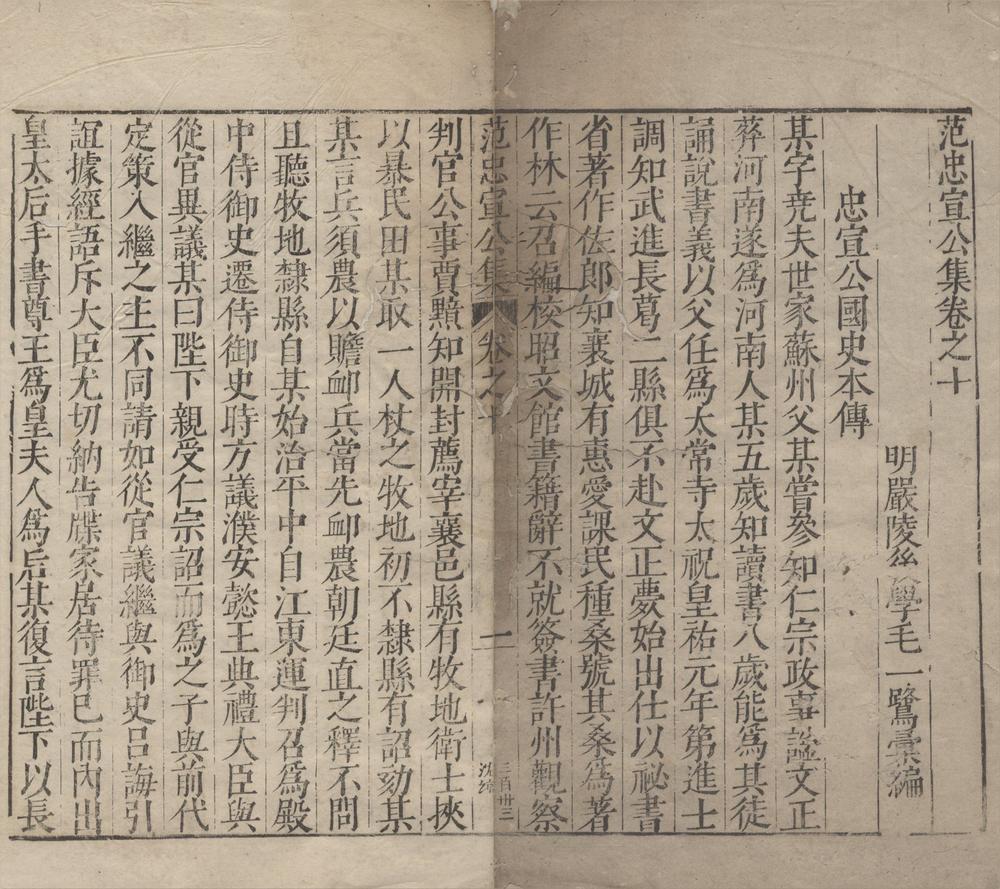 范忠宣公集卷之十
明嚴陵後學毛一鷺彙編
忠宣公國史本傳
某字堯夫世家蘇州父某嘗參知仁宗政事謚文正
葬河南遂爲河南人某五歲知讀書八歲能爲其徒
誦說書義以父任爲太常寺太祝皇祐元年第進士
調知武進長葛二縣俱不赴文正薨始出仕以祕書
省著作佐郎知襄城有惠愛課民種桑號其桑爲著
作林云召編校昭文館書籍辭不就簽書許州觀察
范忠宣公集
卷之十
一
三百卅三
判官公事賈黯知開封薦宰襄邑縣有牧地衛士挾
以暴民田某取一人杖之牧地初不隸縣有詔劾某
某言兵須農以贍卹兵當先卹農朝廷直之釋不問
且聽牧地隸縣自某始治平中自江東運判召爲殿
中侍御史遷侍御史時方議濮安懿王典禮大臣與
從官異議某曰陛下親受仁宗詔而爲之子與前代
定策入繼之主不同請如從官議繼與御史呂誨引
誼據經語斥大臣尤切納告牒家居待罪已而內出
皇太后手書尊王爲皇夫人爲后某復言陛下以長